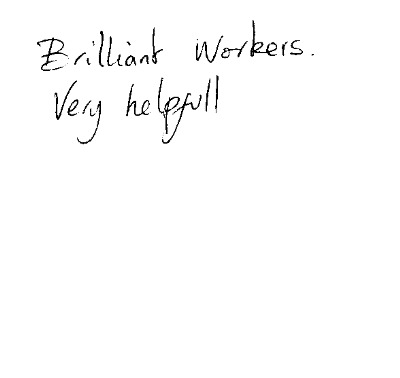 Brilliant Workers.
Very helpfull